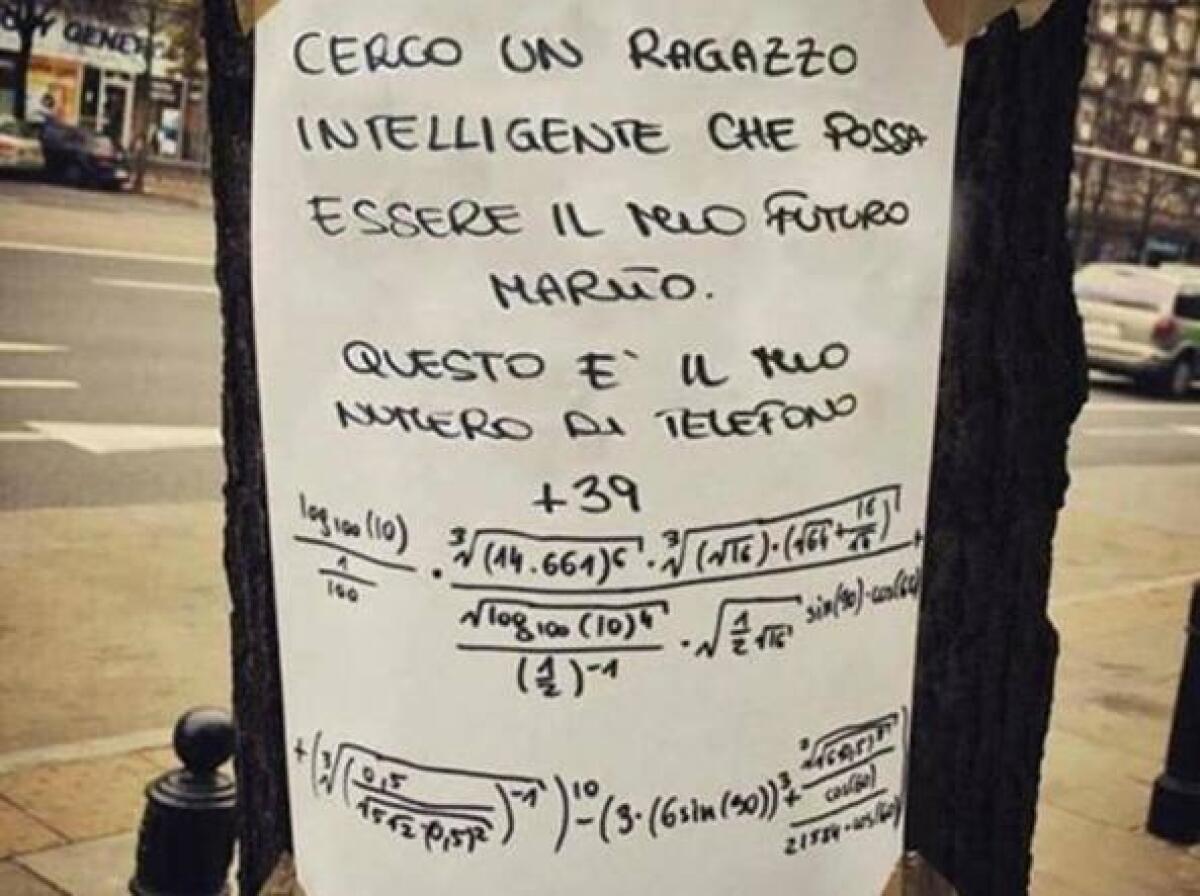 CERCO UN RAGAZZO
INTELLIGENTE CHE POSSA
ESSERE IL MIO FUTURO
MARITO.
QUESTO E' IL MIO
NUMERO DI TELEFONO
+39
log₁₀₀(10) / (1/100) · ∛(14.661)⁶ · ∛(√16)·(√64+16/√16) +
√log₁₀₀(10)⁴ / (1/2)⁻¹ · √(1/2 √16) sin(90)·cos(60)
+(∛(0,5 / √5√2·(0,5)²)⁻¹)¹⁰-(9·(6sin(90))³+
cos(60)